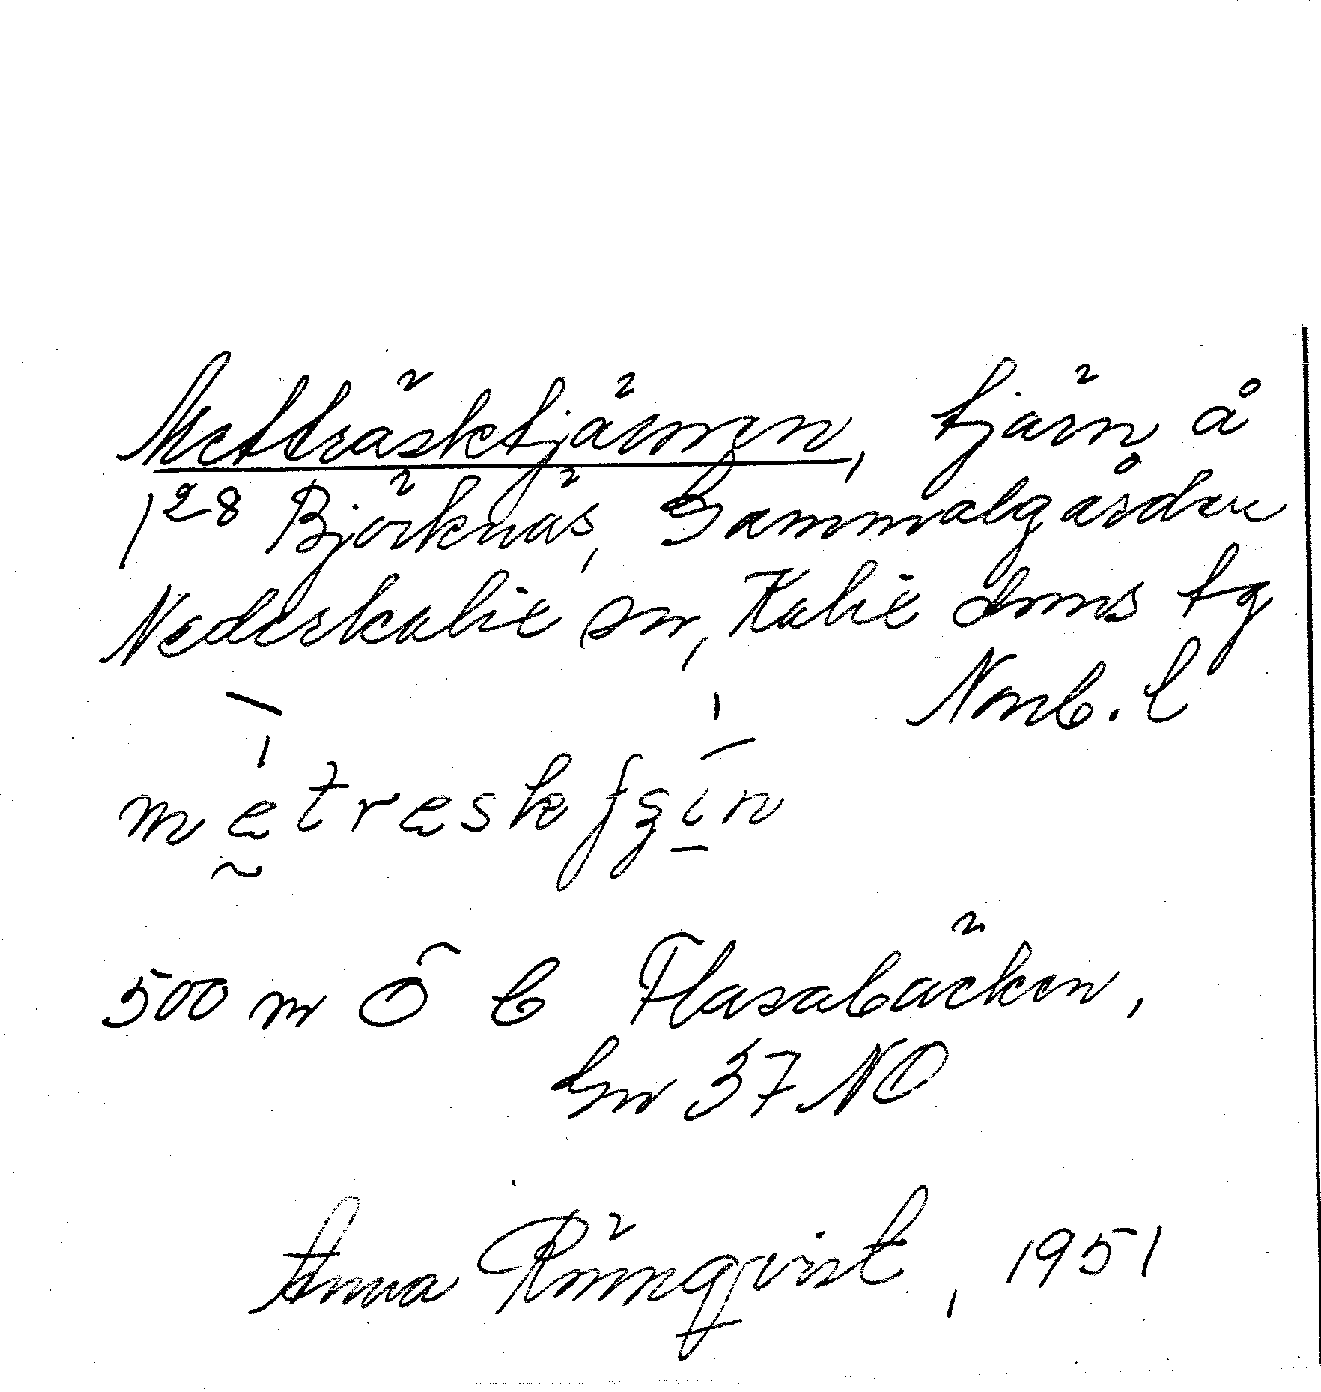 Metträsktjärnen, tjärn å
1²⁸ Björknäs, Gammalgården
Nederkalix sn, Kalix doms tg
Norrb. l
metreskʃʒin
500 m Ö b Flasabäcken,
Gv 37 NO
Anna Rönnqvist, 1951